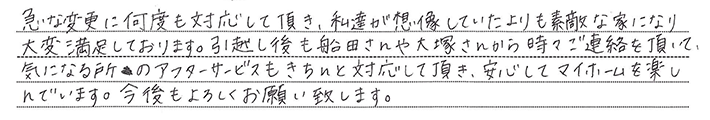 急な変更に何度も対応して頂き、私達が想像していたよりも素敵な家になり
大変満足しております。引越し後も船田さんや大塚さんから時々ご連絡を頂いて、
気になる所のアフターサービスもきちんと対応して頂き、安心してマイホームを楽し
んでいます。今後もよろしくお願い致します。